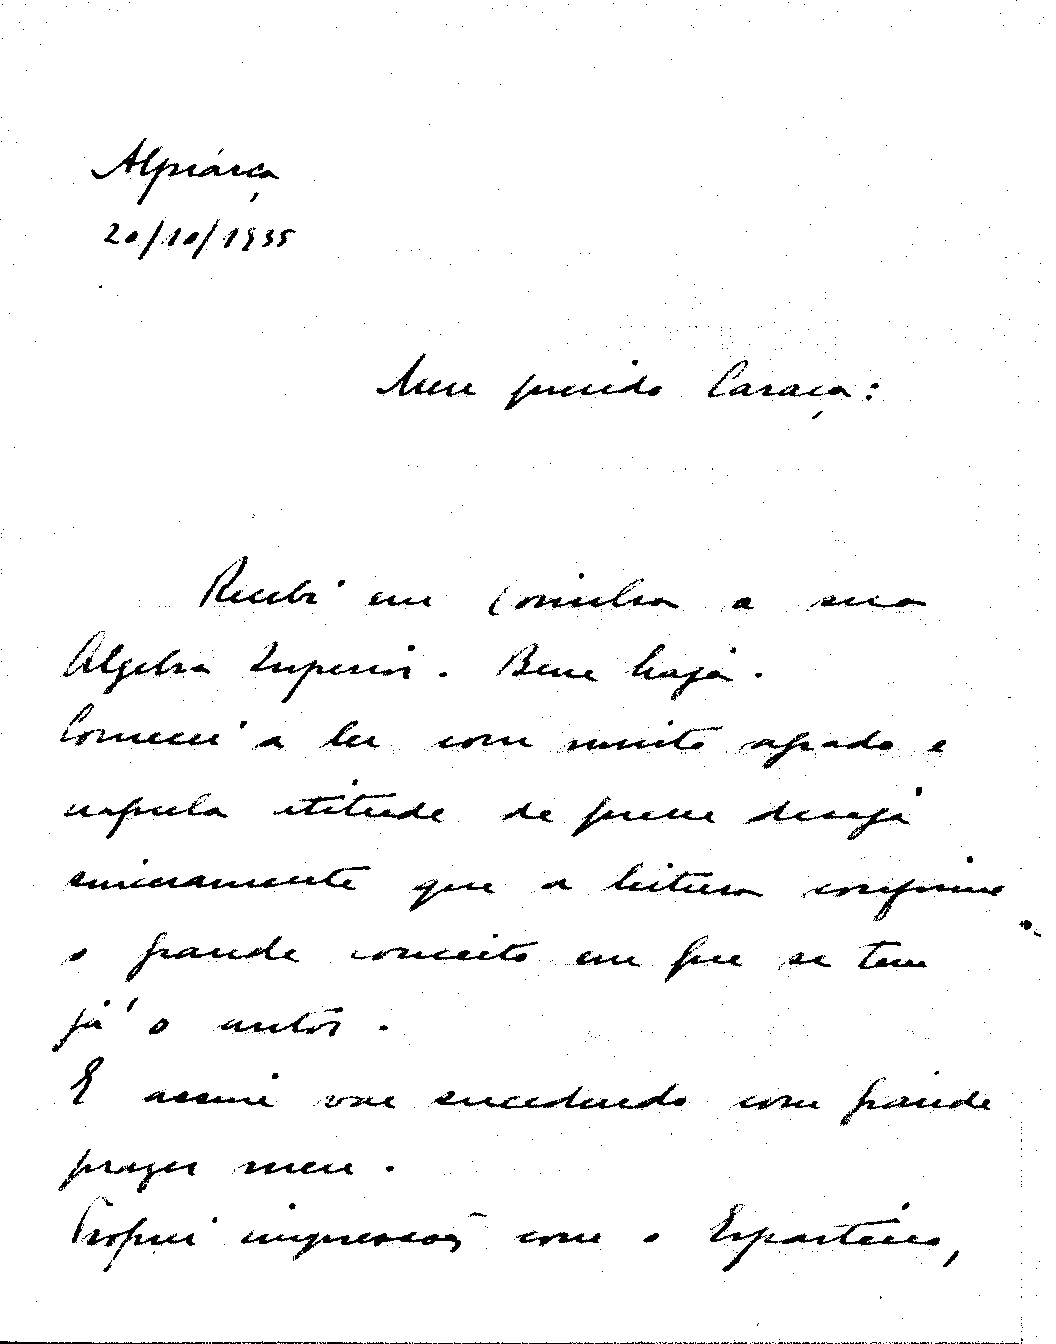 Alpiarça
20/10/1935
Meu querido Caraça:
Recebi em Coimbra a sua
Algebra Superior. Bem haja.
Comecei a ler com muito agrado e
naquela atitude de quem deseja
sinceramente que a leitura confirme
o grande conceito em que se tem
já o autor.
E assim vae sucedendo com grande
prazer meu.
Troquei impressões com o Esparteiro,